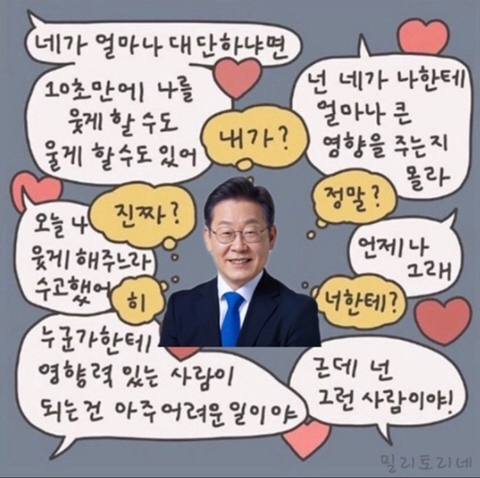 네가 얼마나 대단하냐면
10초만에 나를
웃게 할 수도
울게 할 수도 있어
내가?
넌 네가 나한테
얼마나 큰
영향을 주는지
몰라
정말?
진짜?
오늘 나
웃게 해주느라
수고했어
히
언제나
그래
너한테?
누군가한테
영향력 있는 사람이
되는건 아주어려운일이야
근데 넌
그런 사람이야!
밀리토리네